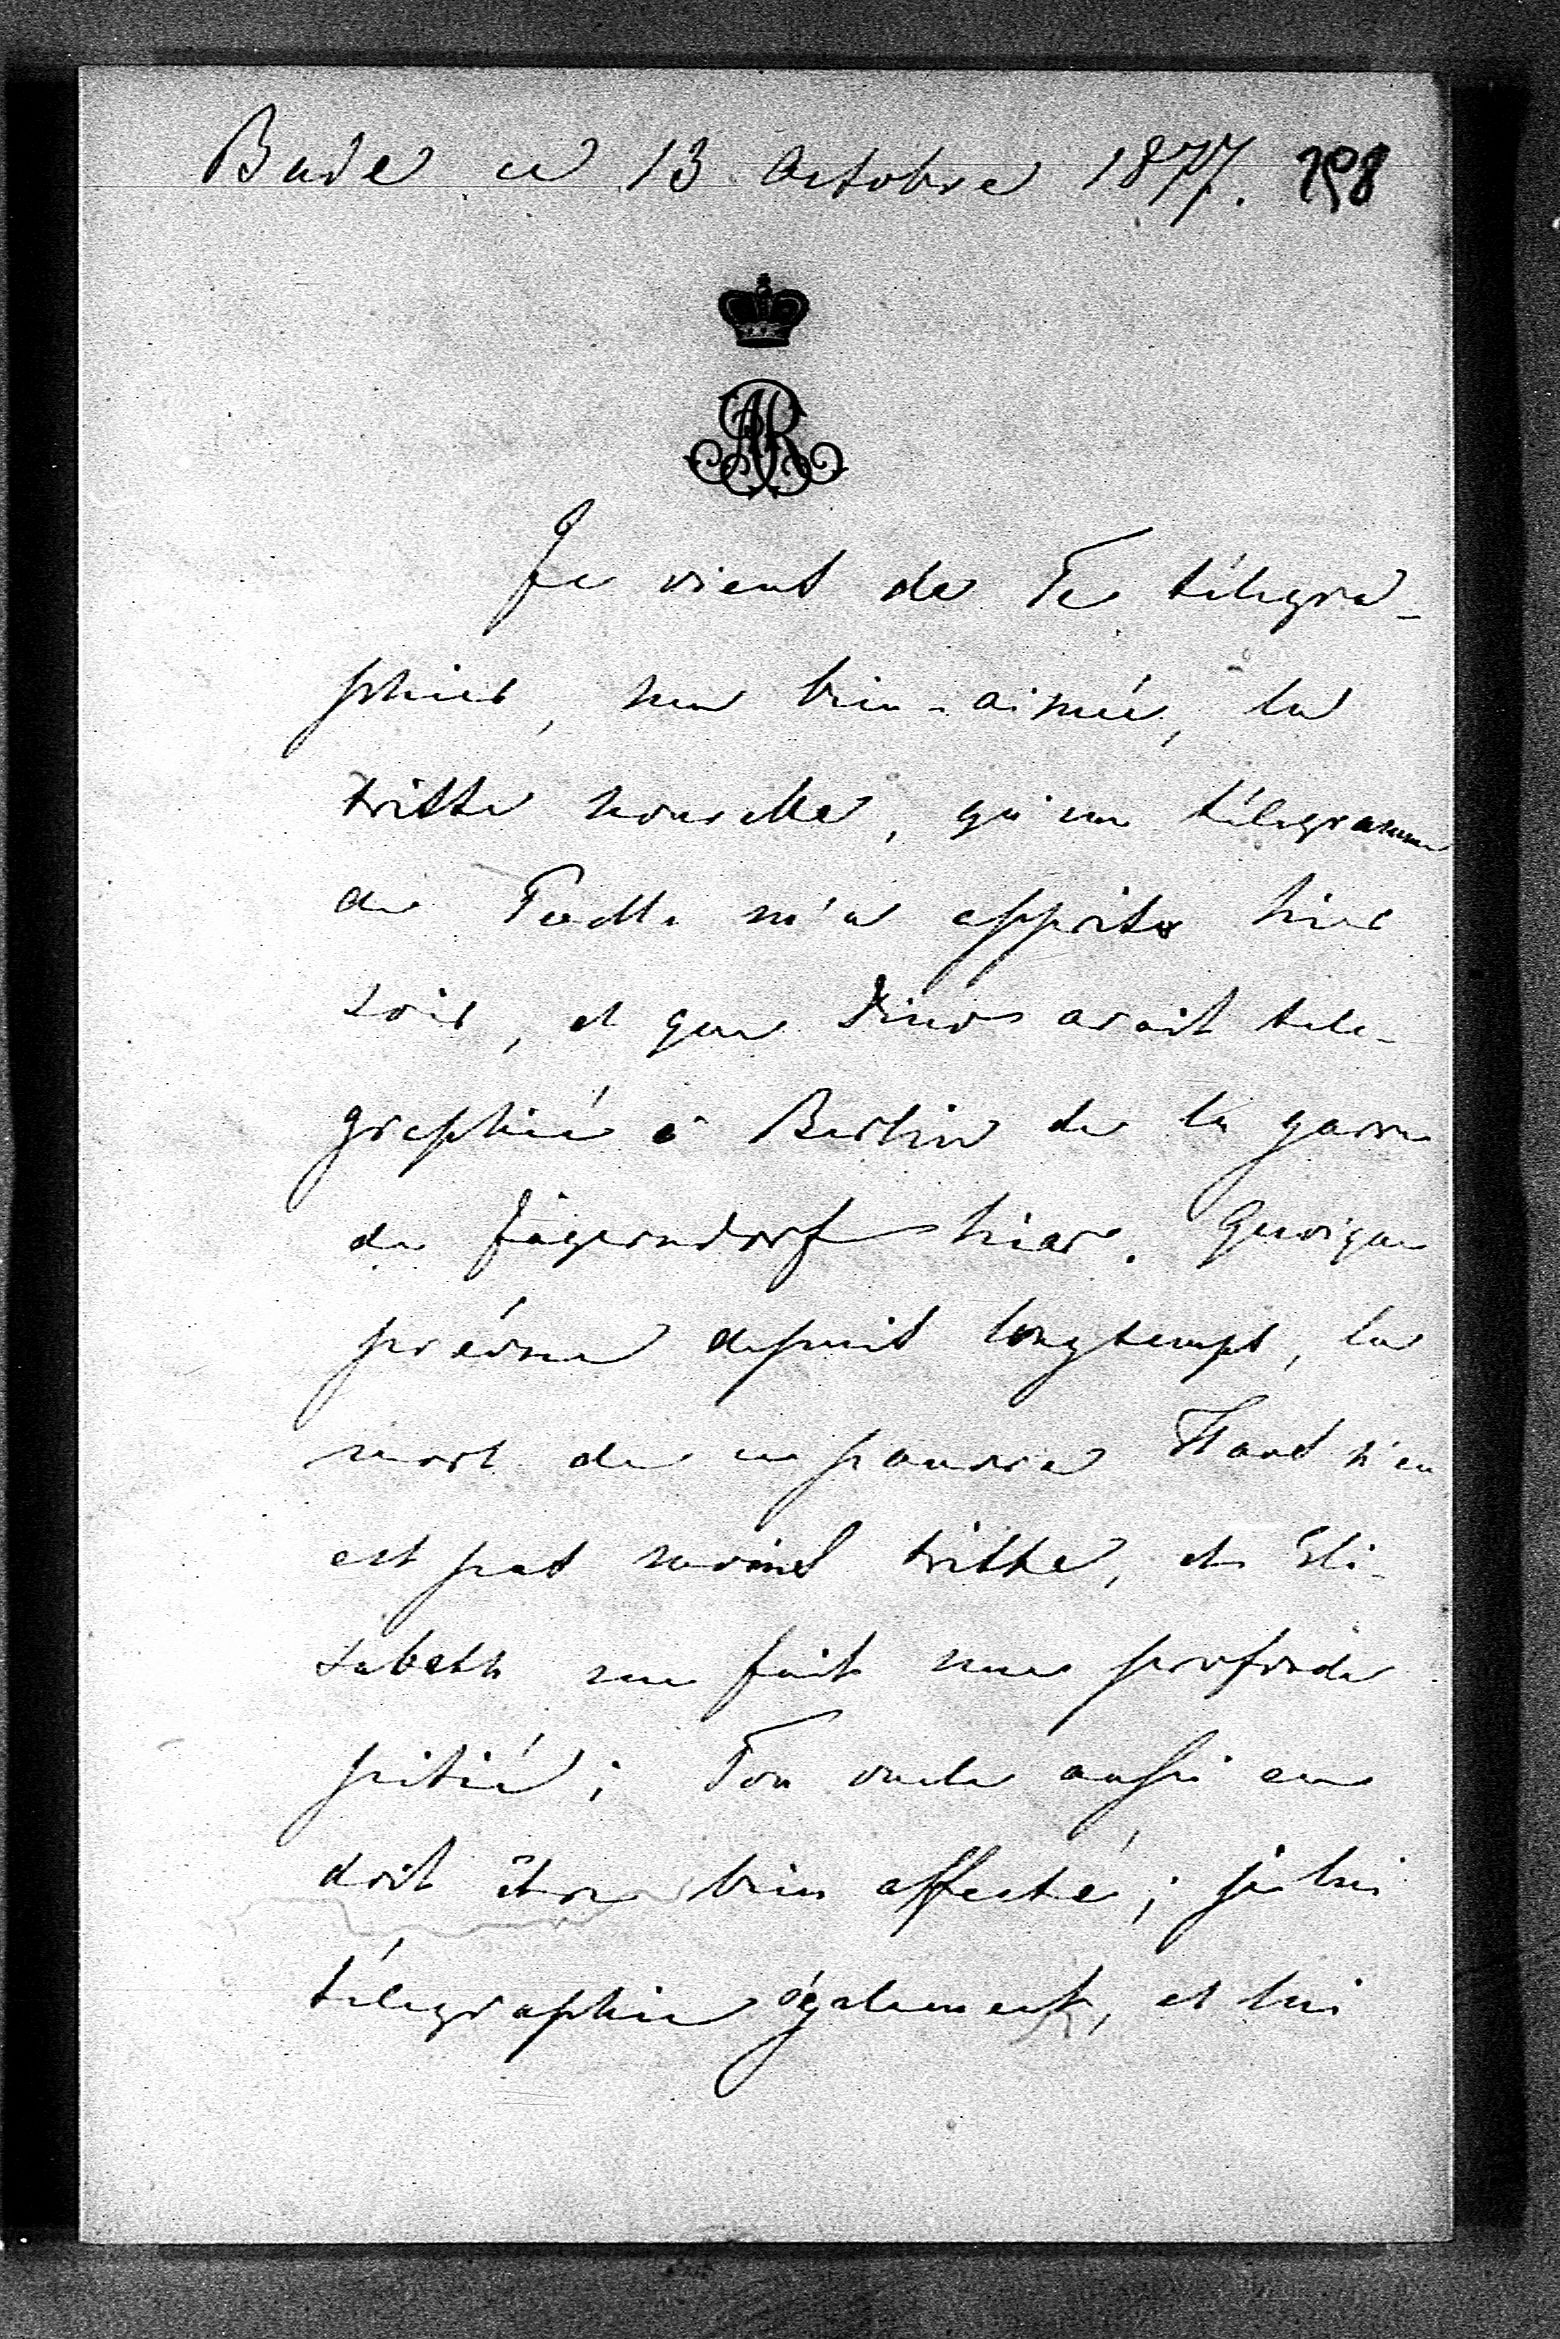 Bade ce 13 Octobre 1877. 158
AR
Je viens de Te télégra-
phier, ma bien-aimée, la
triste nouvelle, qu'un télégramme
de m'a apprise hier
soir, et que avait télé-
graphié à Berlin de la garre
de Jägerndorf hier. Quoique
prévue depuis longtemps, la
mort de ce pauvre Hans n'en
est pas moins triste, et Eli-
sabeth me fait une profonde
pitié; Ton oncle aussi en
doit être bien affecté; je lui
télégraphie également, et lui